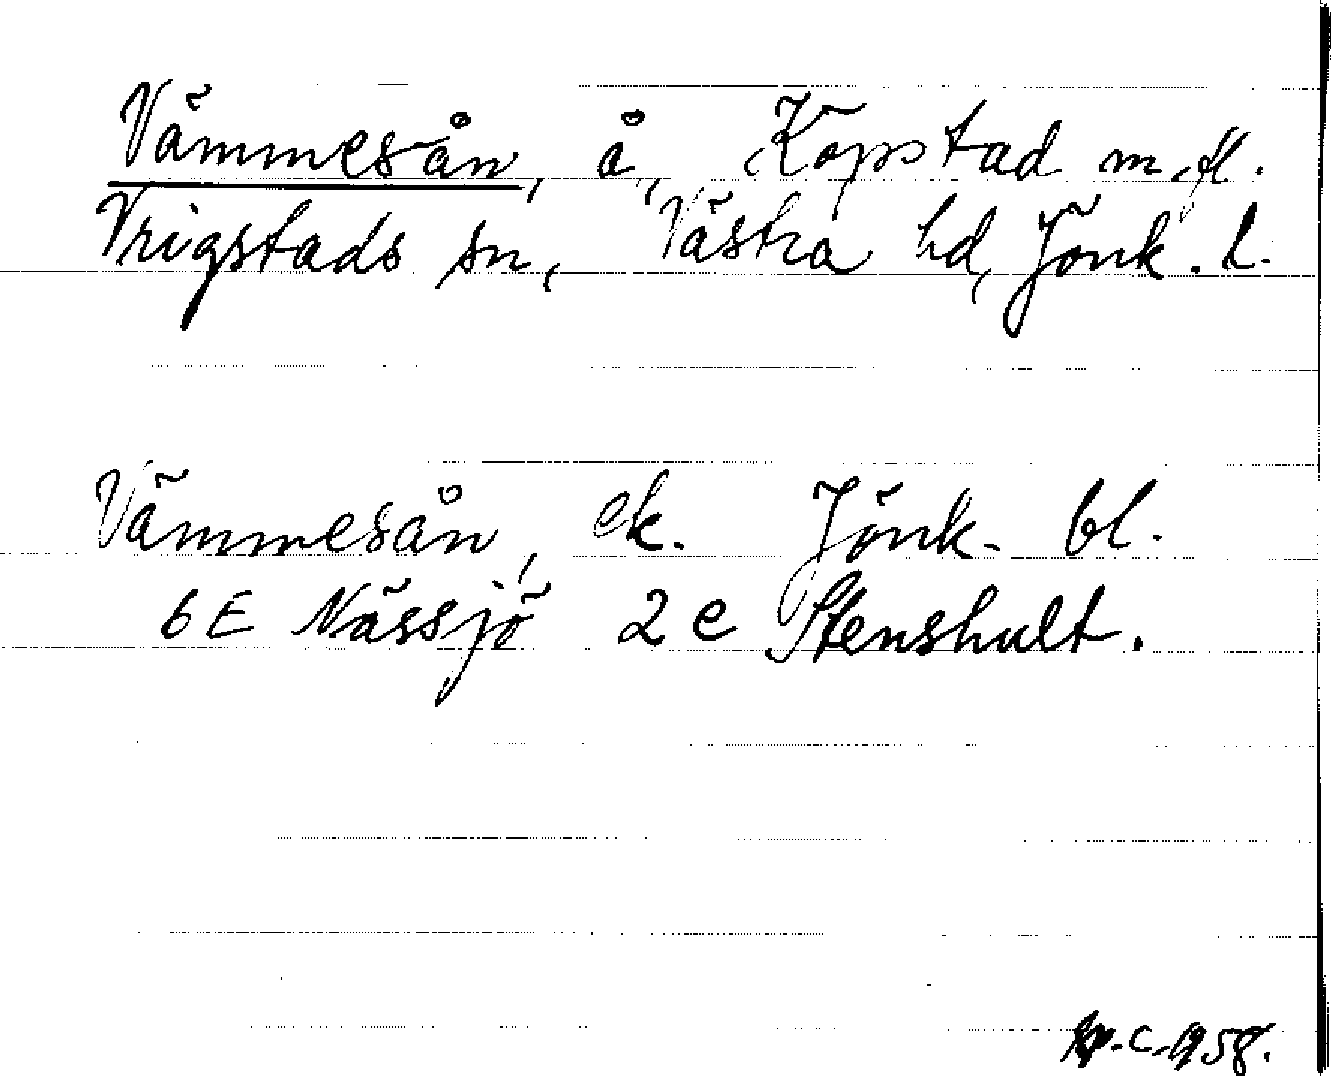 Vämmesån, å, Köpstad m.fl.
Vrigstads sn, Västra hd, Jönk. l.
Vämmesån, ek. Jönk. bl.
6E Nässjö 2e Stenshult.